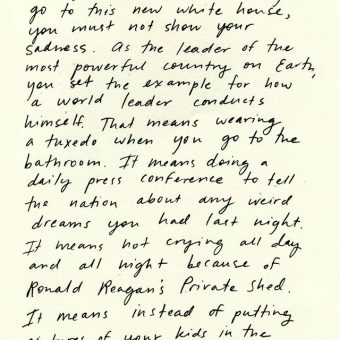 go to this new white house,
you must not show your
sadness. As the leader of the
most powerful country on Earth,
you set the example for how
a world leader conducts
himself. That means wearing
a tuxedo when you go to the
bathroom. It means doing a
daily press conference to tell
the nation about any weird
dreams you had last night.
It means not crying all day
and all night because of
Ronald Reagan's Private Shed.
It means instead of putting
of your kids in the